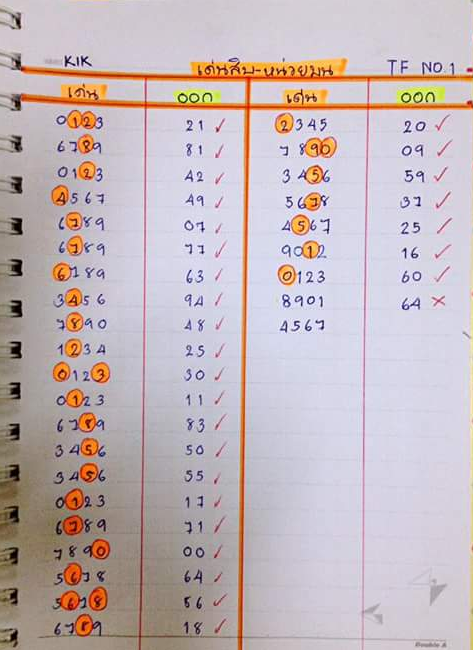 KIK
เด่นสิบ-หน่วยบน
TF NO.1
เด่น ออก
0123 21 ✓
6789 81 ✓
0123 42 ✓
4567 49 ✓
6789 07 ✓
6789 77 ✓
6789 63 ✓
3456 94 ✓
7890 48 ✓
1234 25 ✓
0123 30 ✓
0123 11 ✓
6789 83 ✓
3456 50 ✓
3456 55 ✓
0123 17 ✓
6789 71 ✓
7890 00 ✓
5678 64 ✓
5678 56 ✓
6789 18 ✓
เด่น ออก
2345 20 ✓
7890 09 ✓
3456 59 ✓
5678 37 ✓
4567 25 ✓
9012 16 ✓
0123 60 ✓
8901 64 ✗
4567
Double A